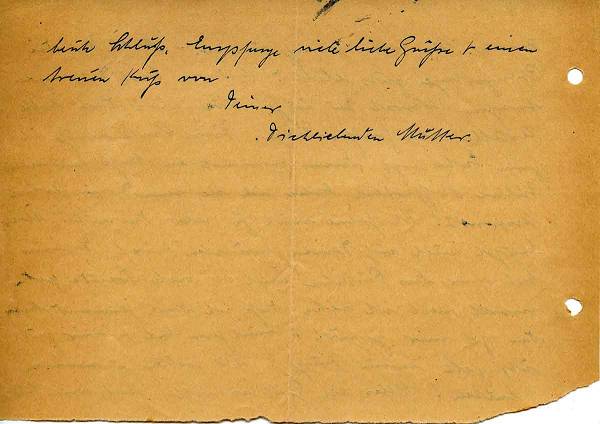 heute Schluß. Empfange viele liebe Grüße + einen
treuen Kuß von
Deiner
Dichliebenden Mutter.